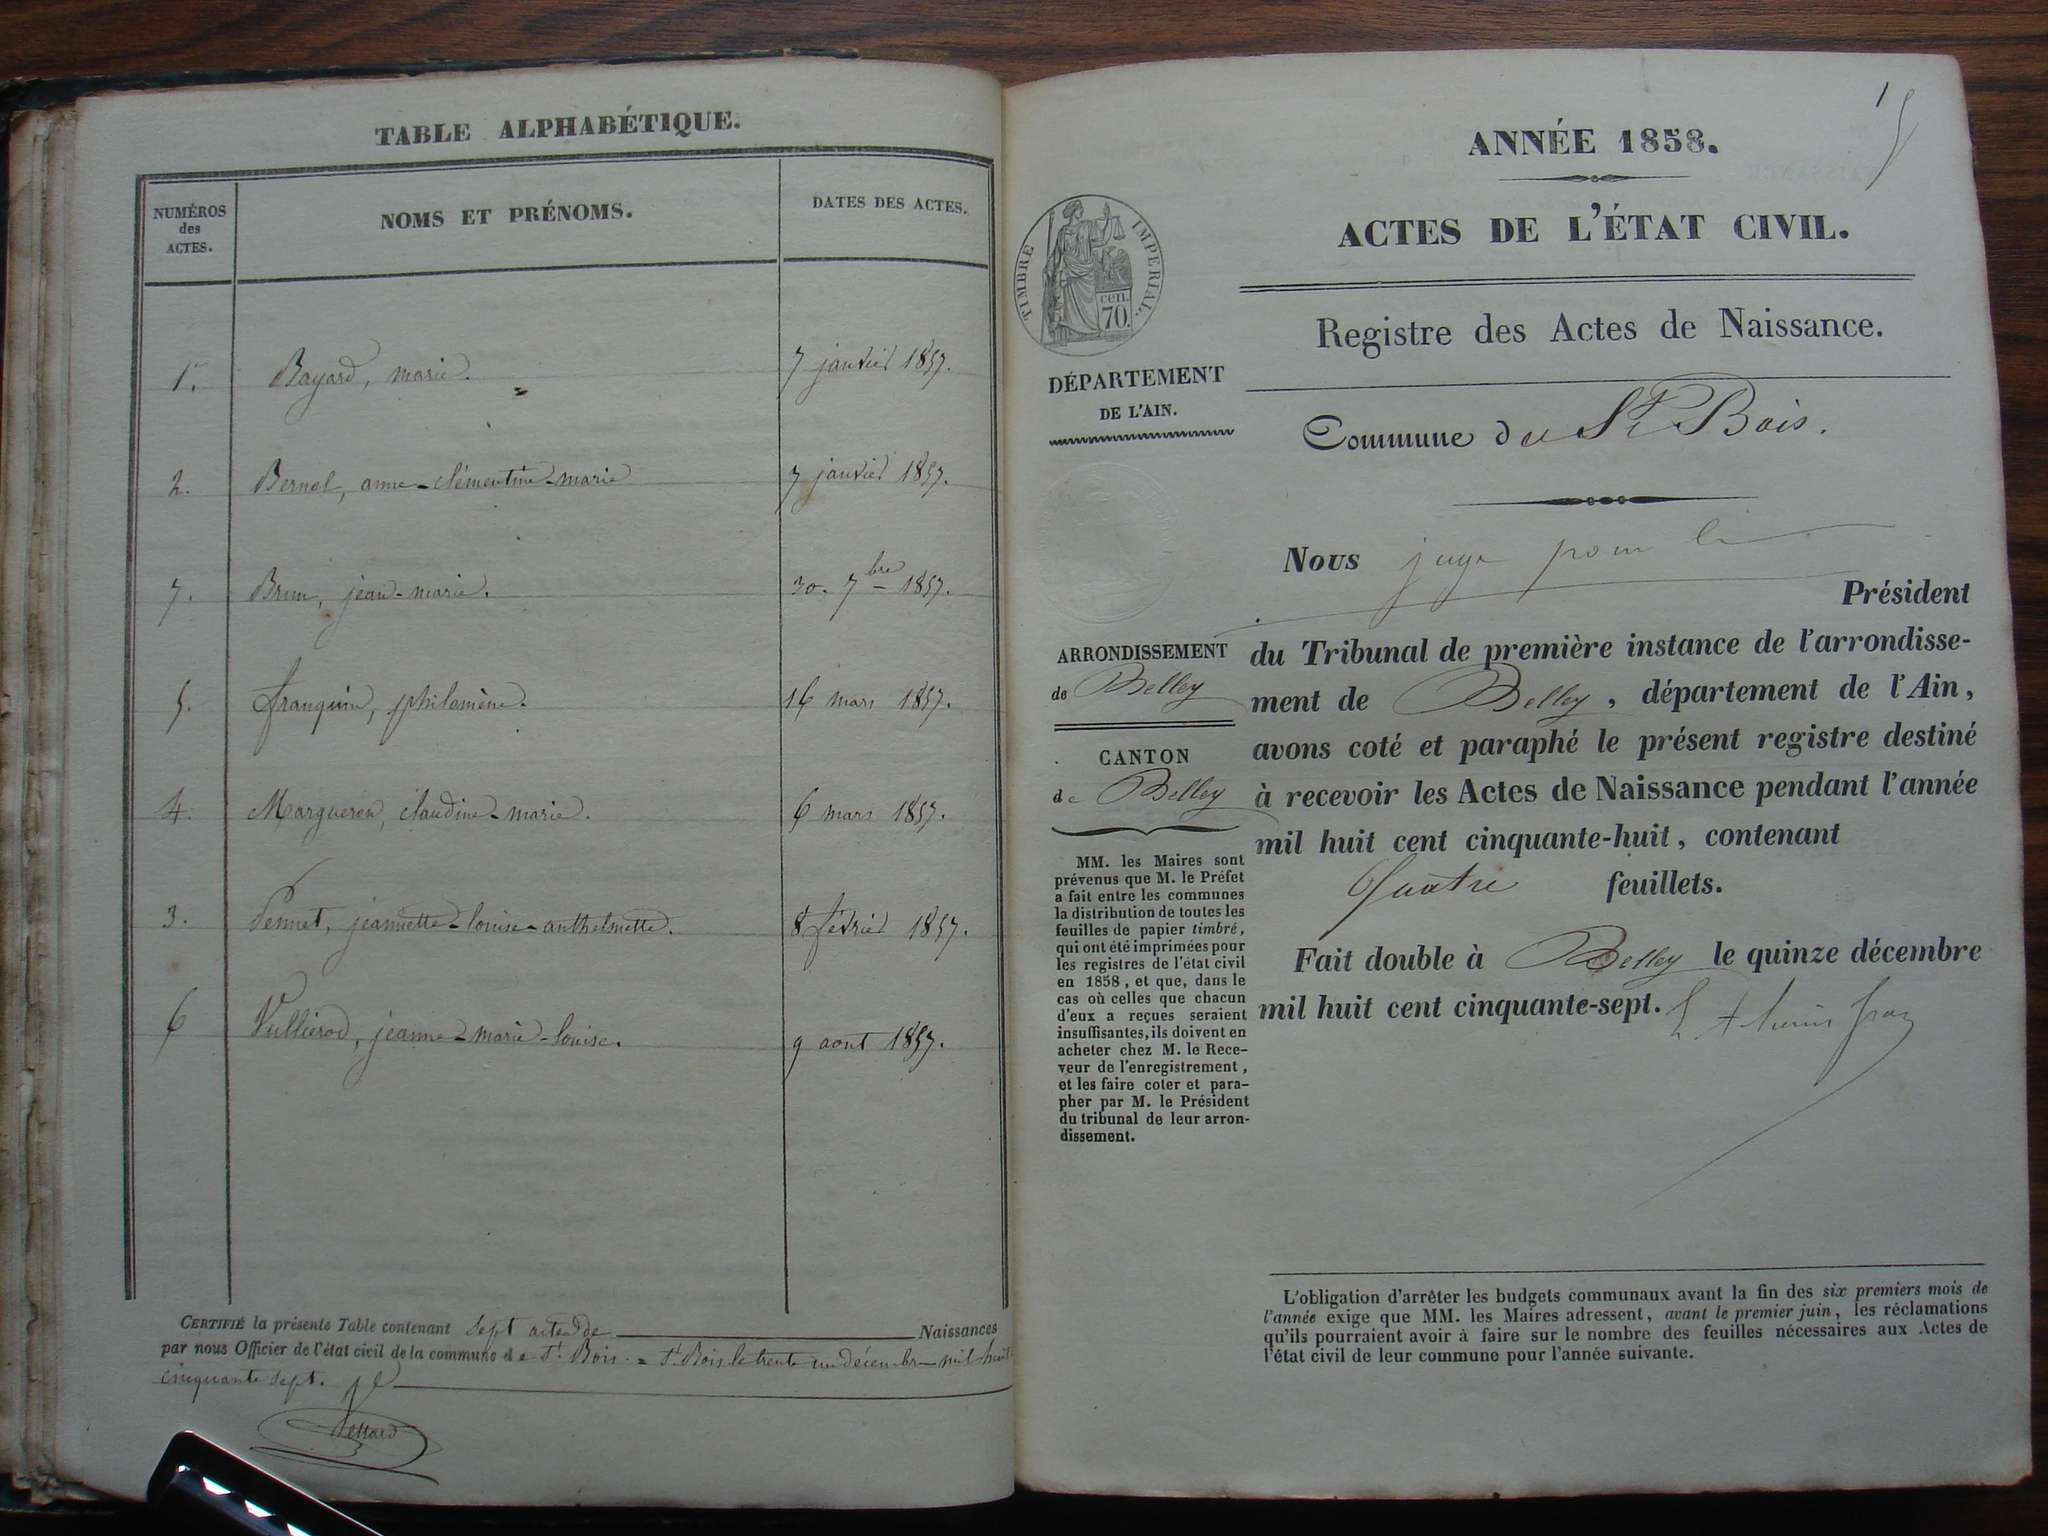 TABLE ALPHABÉTIQUE.
NUMÉROS
des
ACTES.
NOMS ET PRÉNOMS.
DATES DES ACTES.
1. Bayard, marie. 7 janvier 1857.
2. Bernel, anne-clémentine-marie 7 janvier 1857.
7. Brun, jean-marie. 30. 7bre 1857.
5. franquin, philomène. 16 mars 1857.
4. Margueron, claudine-marie. 6 mars 1857.
3. Pennet, jeannette-louise-anthelmette. 8 février 1857.
6 Vulliérod, jeanne-marie-louise. 9 aout 1857.
CERTIFIÉ la présente Table contenant sept actes de Naissances
par nous Officier de l'état civil de la commune de St. Bois. = St. Bois le trente un décembre mil huit
cinquante sept.
1
ANNÉE 1858.
ACTES DE L'ÉTAT CIVIL.
TIMBRE IMPERIAL.
cen.
70.
Registre des Actes de Naissance.
DÉPARTEMENT
DE L'AIN.
Commune de St Bois.
Nous juge pour le
Président
du Tribunal de première instance de l'arrondisse-
ment de Belley, département de l'Ain,
avons coté et paraphé le présent registre destiné
à recevoir les Actes de Naissance pendant l'année
mil huit cent cinquante-huit, contenant
Quatre feuillets.
Fait double à Belley le quinze décembre
mil huit cent cinquante-sept.
ARRONDISSEMENT
de Belley
CANTON
de Belley
MM. les Maires sont
prévenus que M. le Préfet
a fait entre les communes
la distribution de toutes les
feuilles de papier timbré,
qui ont été imprimées pour
les registres de l'état civil
en 1858, et que, dans le
cas où celles que chacun
d'eux a reçues seraient
insuffisantes, ils doivent en
acheter chez M. le Rece-
veur de l'enregistrement,
et les faire coter et para-
pher par M. le Président
du tribunal de leur arron-
dissement.
L'obligation d'arrêter les budgets communaux avant la fin des six premiers mois de
l'année exige que MM. les Maires adressent, avant le premier juin, les réclamations
qu'ils pourraient avoir à faire sur le nombre des feuilles nécessaires aux Actes de
l'état civil de leur commune pour l'année suivante.